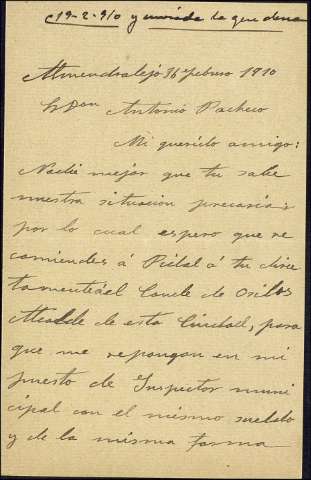 c 19-2-910 y envíada la que desea
Almendralejo 16 febrero 1910
Sr Don Antonio Pacheco
Mi querido amigo:
Nadie mejor que tu sabe
nuestra situacion precaria;
por lo cual espero que re
comiendes á Pidal ó tu direc
tamente al Conde de Osilos
Alcalde de esta Ciudad, para
que me repongan en mi
puesto de Inspector muni
cipal con el mismo sueldo
y de la misma forma